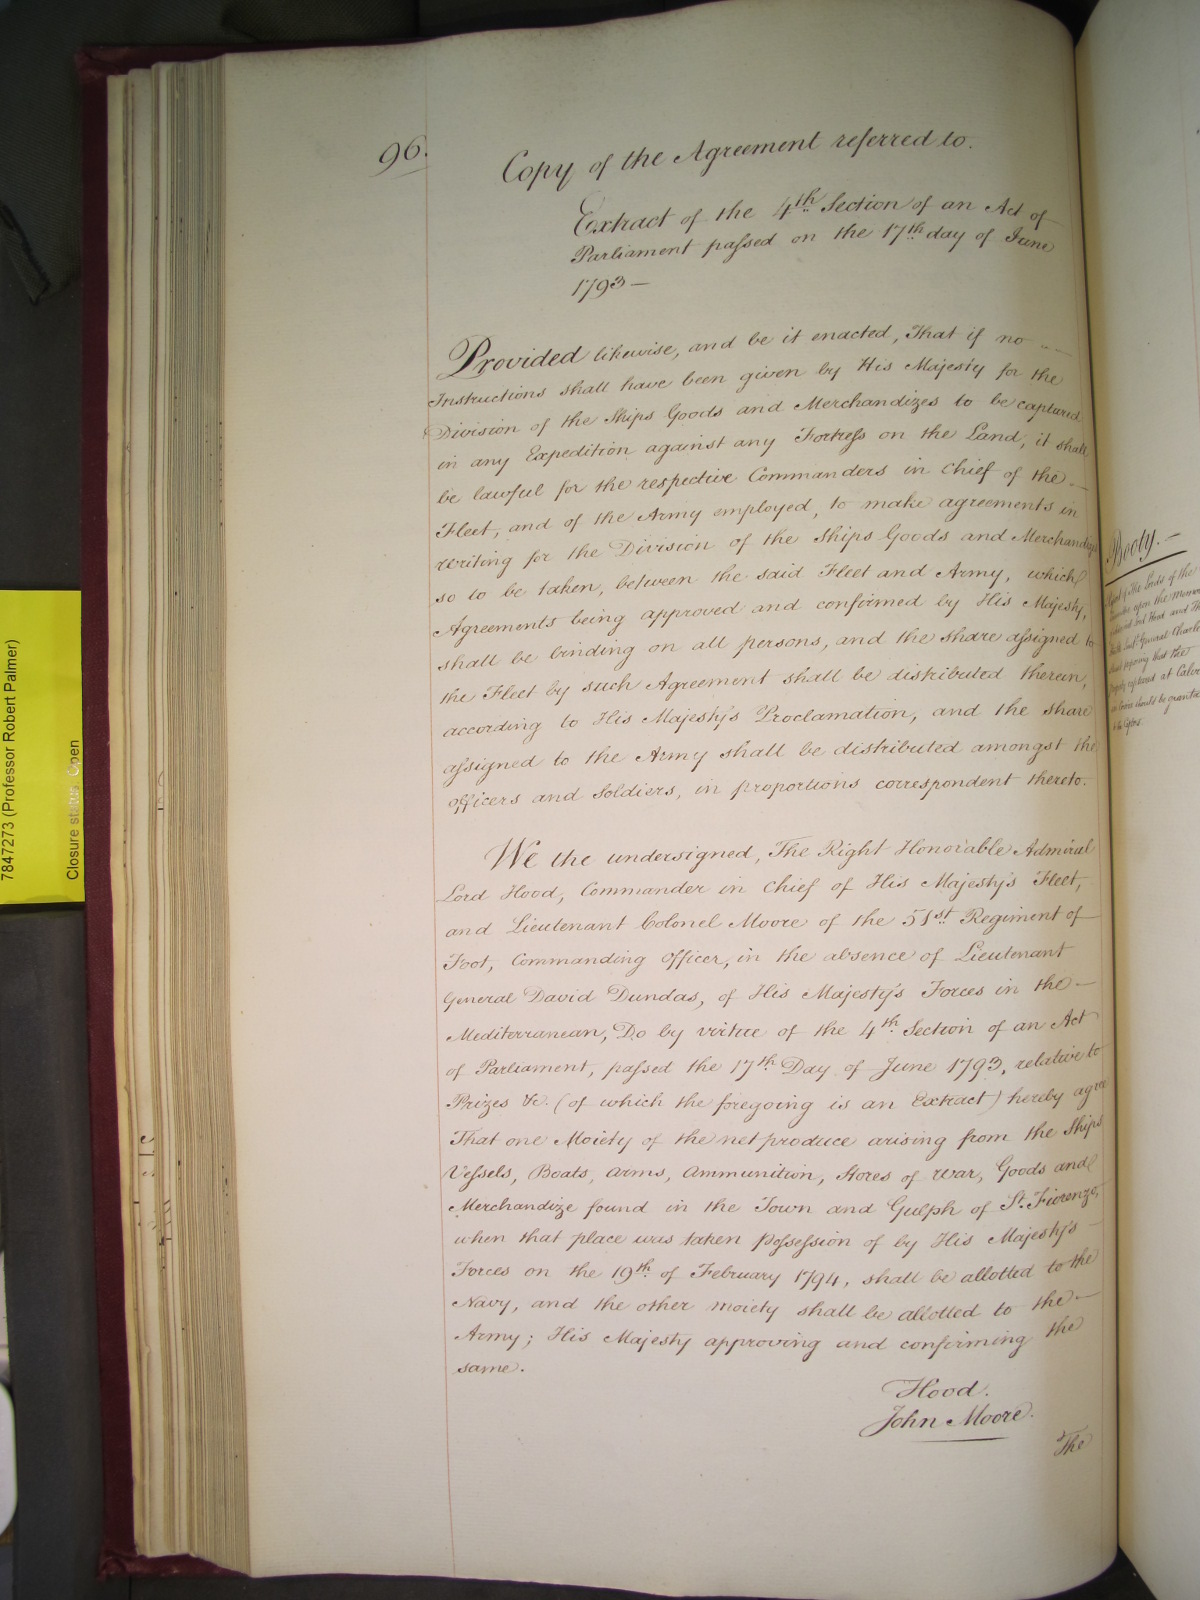 96.
Copy of the Agreement referred to.
Extract of the 4th Section of an Act of
Parliament passed on the 17th day of June
1793 —
Provided likewise, and be it enacted, That if no
Instructions shall have been given by His Majesty for the
Division of the Ships Goods and Merchandizes to be captured
in any Expedition against any Fortress on the Land, it shall
be lawful for the respective Commanders in Chief of the
Fleet, and of the Army employed, to make agreements in
writing for the Division of the Ships Goods and
so to be taken, between the said Fleet and Army, which
Agreements being approved and confirmed by His Majesty,
shall be binding on all persons, and the share assigned to
the Fleet by such Agreement shall be distributed therein,
according to His Majesty's Proclamation, and the share
assigned to the Army shall be distributed amongst the
officers and Soldiers, in proportions correspondent thereto.
We the undersigned, The Right Honorable Admiral
Lord Hood, Commander in Chief of His Majesty's Fleet,
and Lieutenant Colonel Moore of the 51st Regiment of
Foot, Commanding Officer, in the absence of Lieutenant
General David Dundas, of His Majesty's Forces in the —
Mediterranean, Do by virtue of the 4th Section of an Act
of Parliament, passed the 17th Day of June 1793, relative to
Prizes &c. (of which the foregoing is an Extract) hereby agree
That one Moiety of the net produce arising from the Ships
Vessels, Boats, Arms, Ammunition, Stores of War, Goods and
Merchandize found in the Town and Gulph of St. Fiorenzo,
when that place was taken possession of by His Majesty's
Forces on the 19th of February 1794, shall be allotted to the
Navy, and the other moiety shall be allotted to the —
Army; His Majesty approving and confirming the
same.
Hood.
John Moore.
The
Booty. —
7847273 (Professor Robert Palmer)
Closure status Open